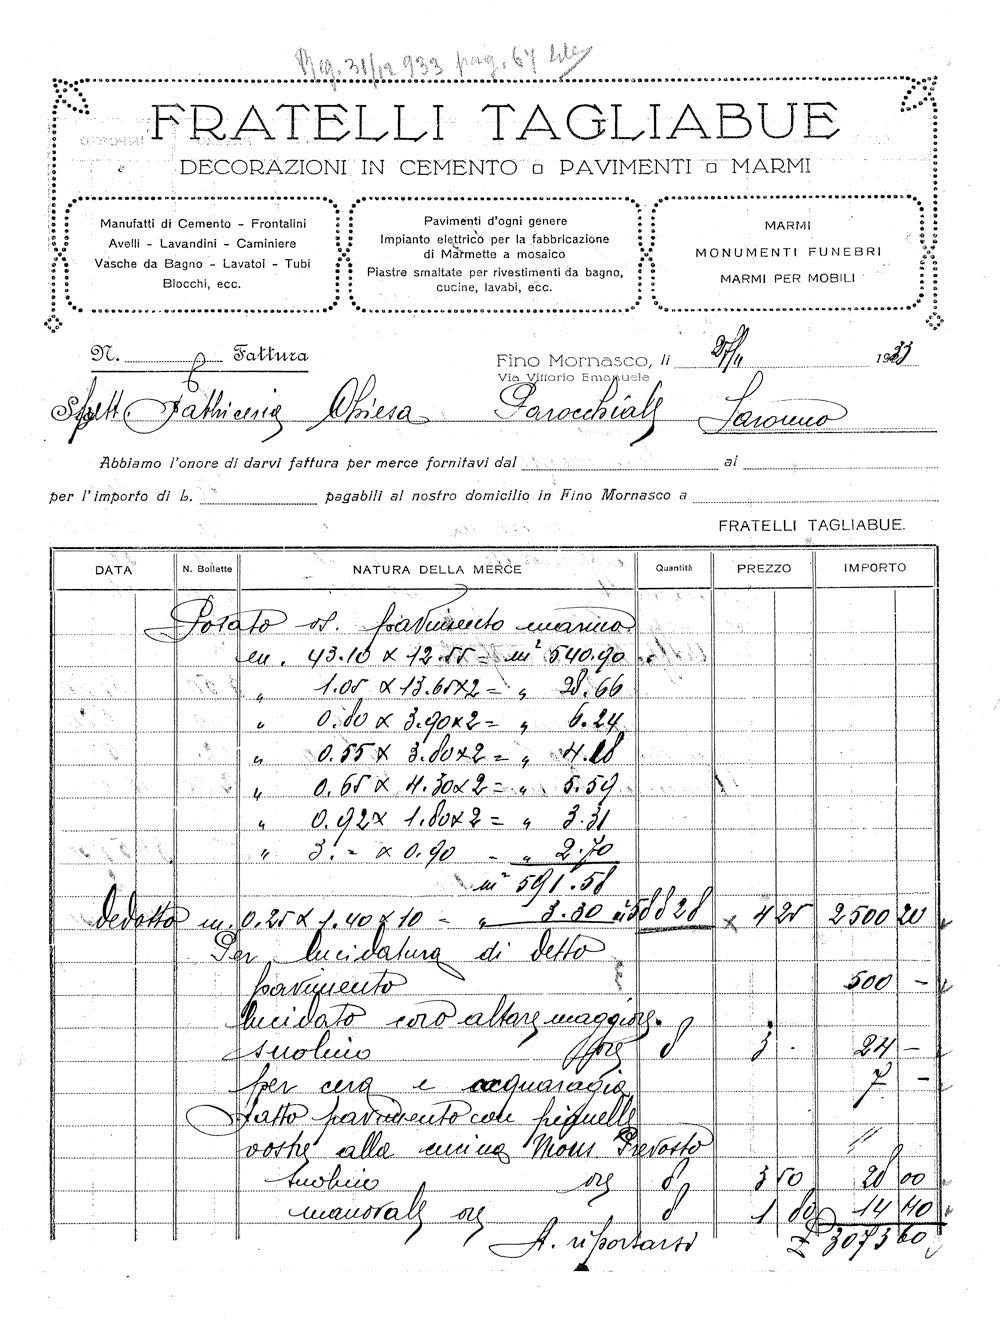 Reg. 31/12 933 pag. 67
FRATELLI TAGLIABUE
DECORAZIONI IN CEMENTO □ PAVIMENTI □ MARMI
Manufatti di Cemento - Frontalini
Avelli - Lavandini - Caminiere
Vasche da Bagno - Lavatoi - Tubi
Blocchi, ecc.
Pavimenti d'ogni genere
Impianto elettrico per la fabbricazione
di Marmette a mosaico
Piastre smaltate per rivestimenti da bagno,
cucine, lavabi, ecc.
MARMI
MONUMENTI FUNEBRI
MARMI PER MOBILI
N. Fattura
Fino Mornasco, li 1933
Via Vittorio Emanuele
Spett. Fabbriceria Chiesa Parocchiale Saronno
Abbiamo l'onore di darvi fattura per merce fornitavi dal al
per l'importo di L. pagabili al nostro domicilio in Fino Mornasco a
FRATELLI TAGLIABUE.
DATA N. Bollette NATURA DELLA MERCE Quantità PREZZO IMPORTO
Posato pavimento marmo
m. 43.10 x 12.55 = m² 540.90
" 1.05 x 13.65 x 2 = " 28.66
" 0.80 x 3.90 x 2 = " 6.24
" 0.55 x 3.80 x 2 = " 4.18
" 0.65 x 4.30 x 2 = " 5.59
" 0.92 x 1.80 x 2 = " 3.31
" 3.- x 0.90 - " 2.70
m² 591.58
dedotto m. 0.25 x 1.40 x 10 = " 3.30 588 28 x 4 25 2500 20
Per lucidatura di detto
pavimento 500 -
lucidato coro altare maggiore.
suolino ore 8 3 . 24 -
per cera e acquaragia 7 -
fatto pavimento con pianelle
vostre alla cucina Mons Prevosto "
suolino ore 8 3 50 28 00
manovale ore 8 1 80 14 40
A riportarsi £ 3073 60